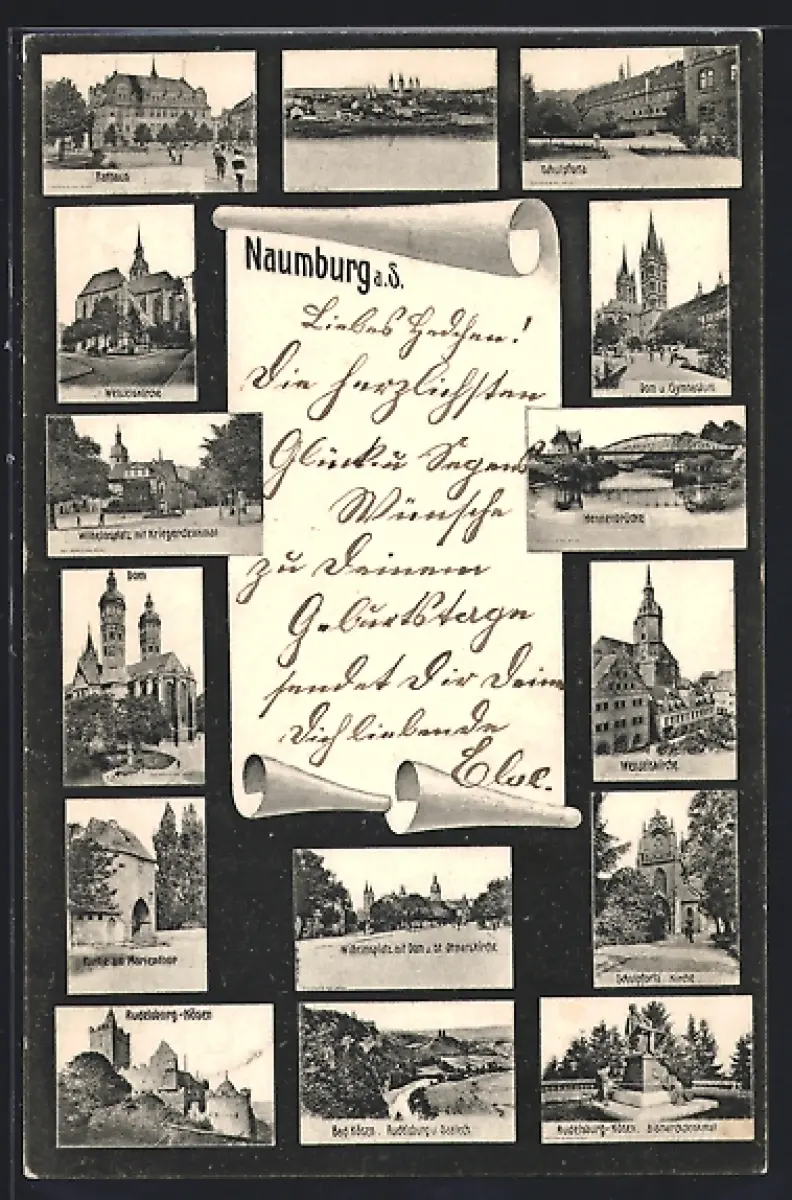 Rathaus
Schulpforta
Naumburg a.S.
Liebes Hedchen!
Die herzlichsten
Glück u Segens
Wünsche
zu Deinem
Geburtstage
sendet Dir Deine
Dich liebende
Wenzelskirche
Dom u. Gymnasium
Wilhelmsplatz mit Kriegerdenkmal
Hennenbrücke
Dom
Wenzelskirche
Partie am Marientor
Wilhelmsplatz mit Dom u. St. Othmarskirche
Schulpforta Kirche
Rudelsburg-Kösen
Bad Kösen. Rudelsburg u. Saaleck.
Rudelsburg-Kösen. Bismarckdenkmal